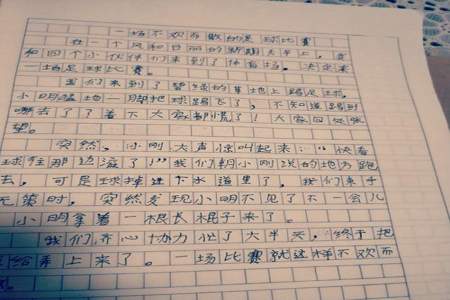 一场不欢而散的足球比赛
在一个风和日丽的星期天早上,我
和四个小伙伴们来到了体育场。决定来
一场足球比赛。
我们来到了碧绿的草地上踢足球,
小明猛地一脚把球踢飞了,不知道踢到
哪去了了看不大家都慌了!大家四处张
望。
突然,小刚大声惊叫起来:"快看
球往那边滚了!"我们朝小刚说的地方跑
去,可是球掉进下水道里了。我们束手
无策时,突然发现小明不见了不一会儿
小明拿着一根长棍子来了。
我们齐心协力忙了大半天,终于把
球给弄上来了。一场比赛就这样不欢而